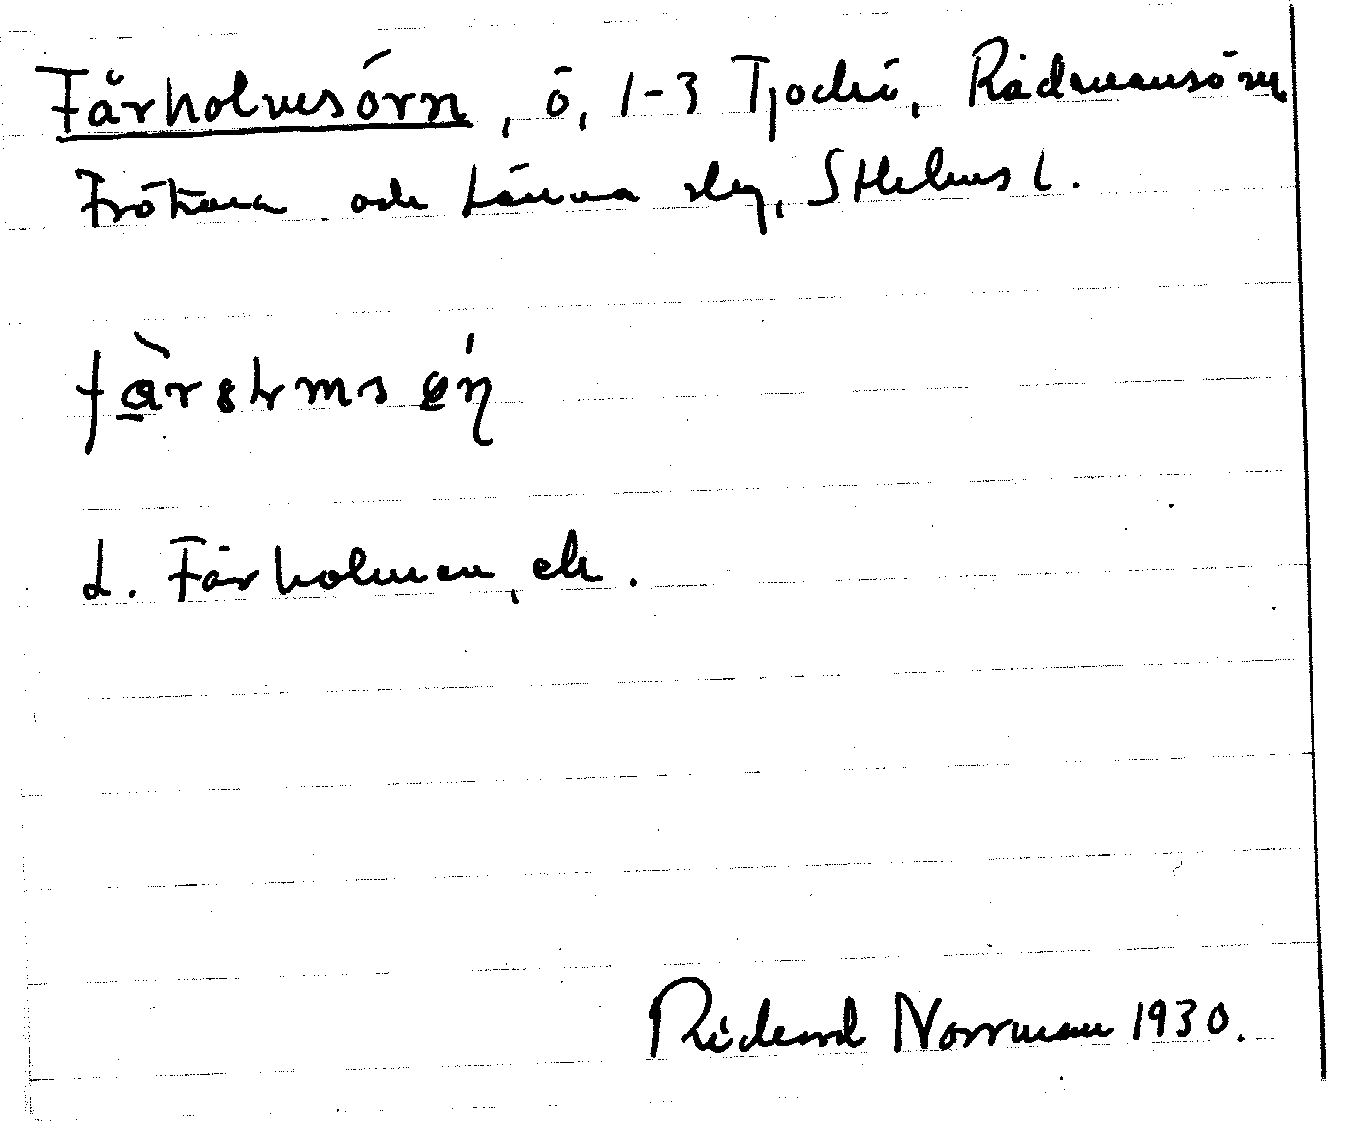 Fårholmsörn, ö, 1-3 Tjockö, Rådmansöns
Frötuna och Länna slg, Sthlms l.
L. Fårholmen, ek.
Rickard Norrman 1930.